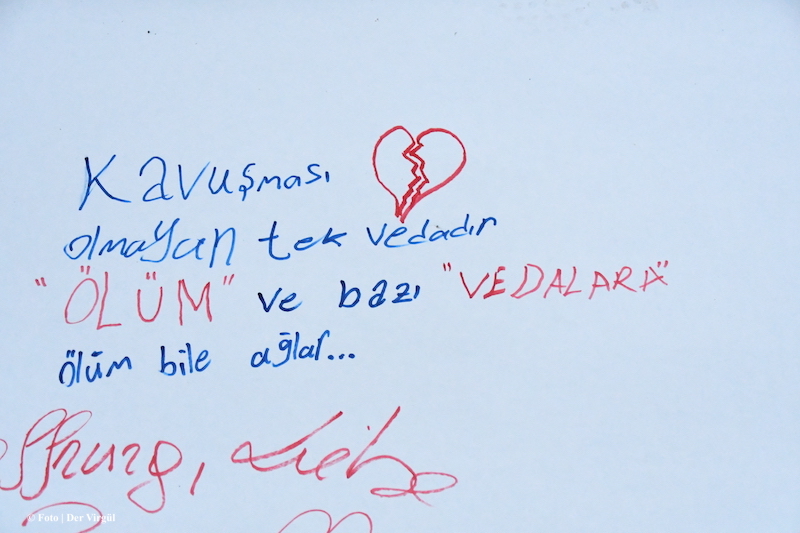 Kavuşması
olmayan tek vedadır
"ÖLÜM" ve bazı "VEDALARA"
ölüm bile ağlar...
offnung, Liebe
© Foto | Der Virgül